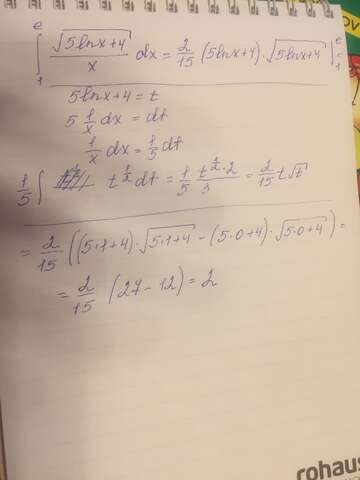 ∫₁ᵉ √(5lnx+4)/x dx = 2/15 (5lnx+4)·√(5lnx+4) |₁ᵉ
5lnx+4 = t
5 1/x dx = dt
1/x dx = 1/5 dt
1/5 ∫ t^(1/2) dt = 1/5 t^(3/2)·2/3 = 2/15 t√t
= 2/15 ((5·1+4)·√(5·1+4) - (5·0+4)·√(5·0+4)) =
= 2/15 (27-12) = 2
rohaus